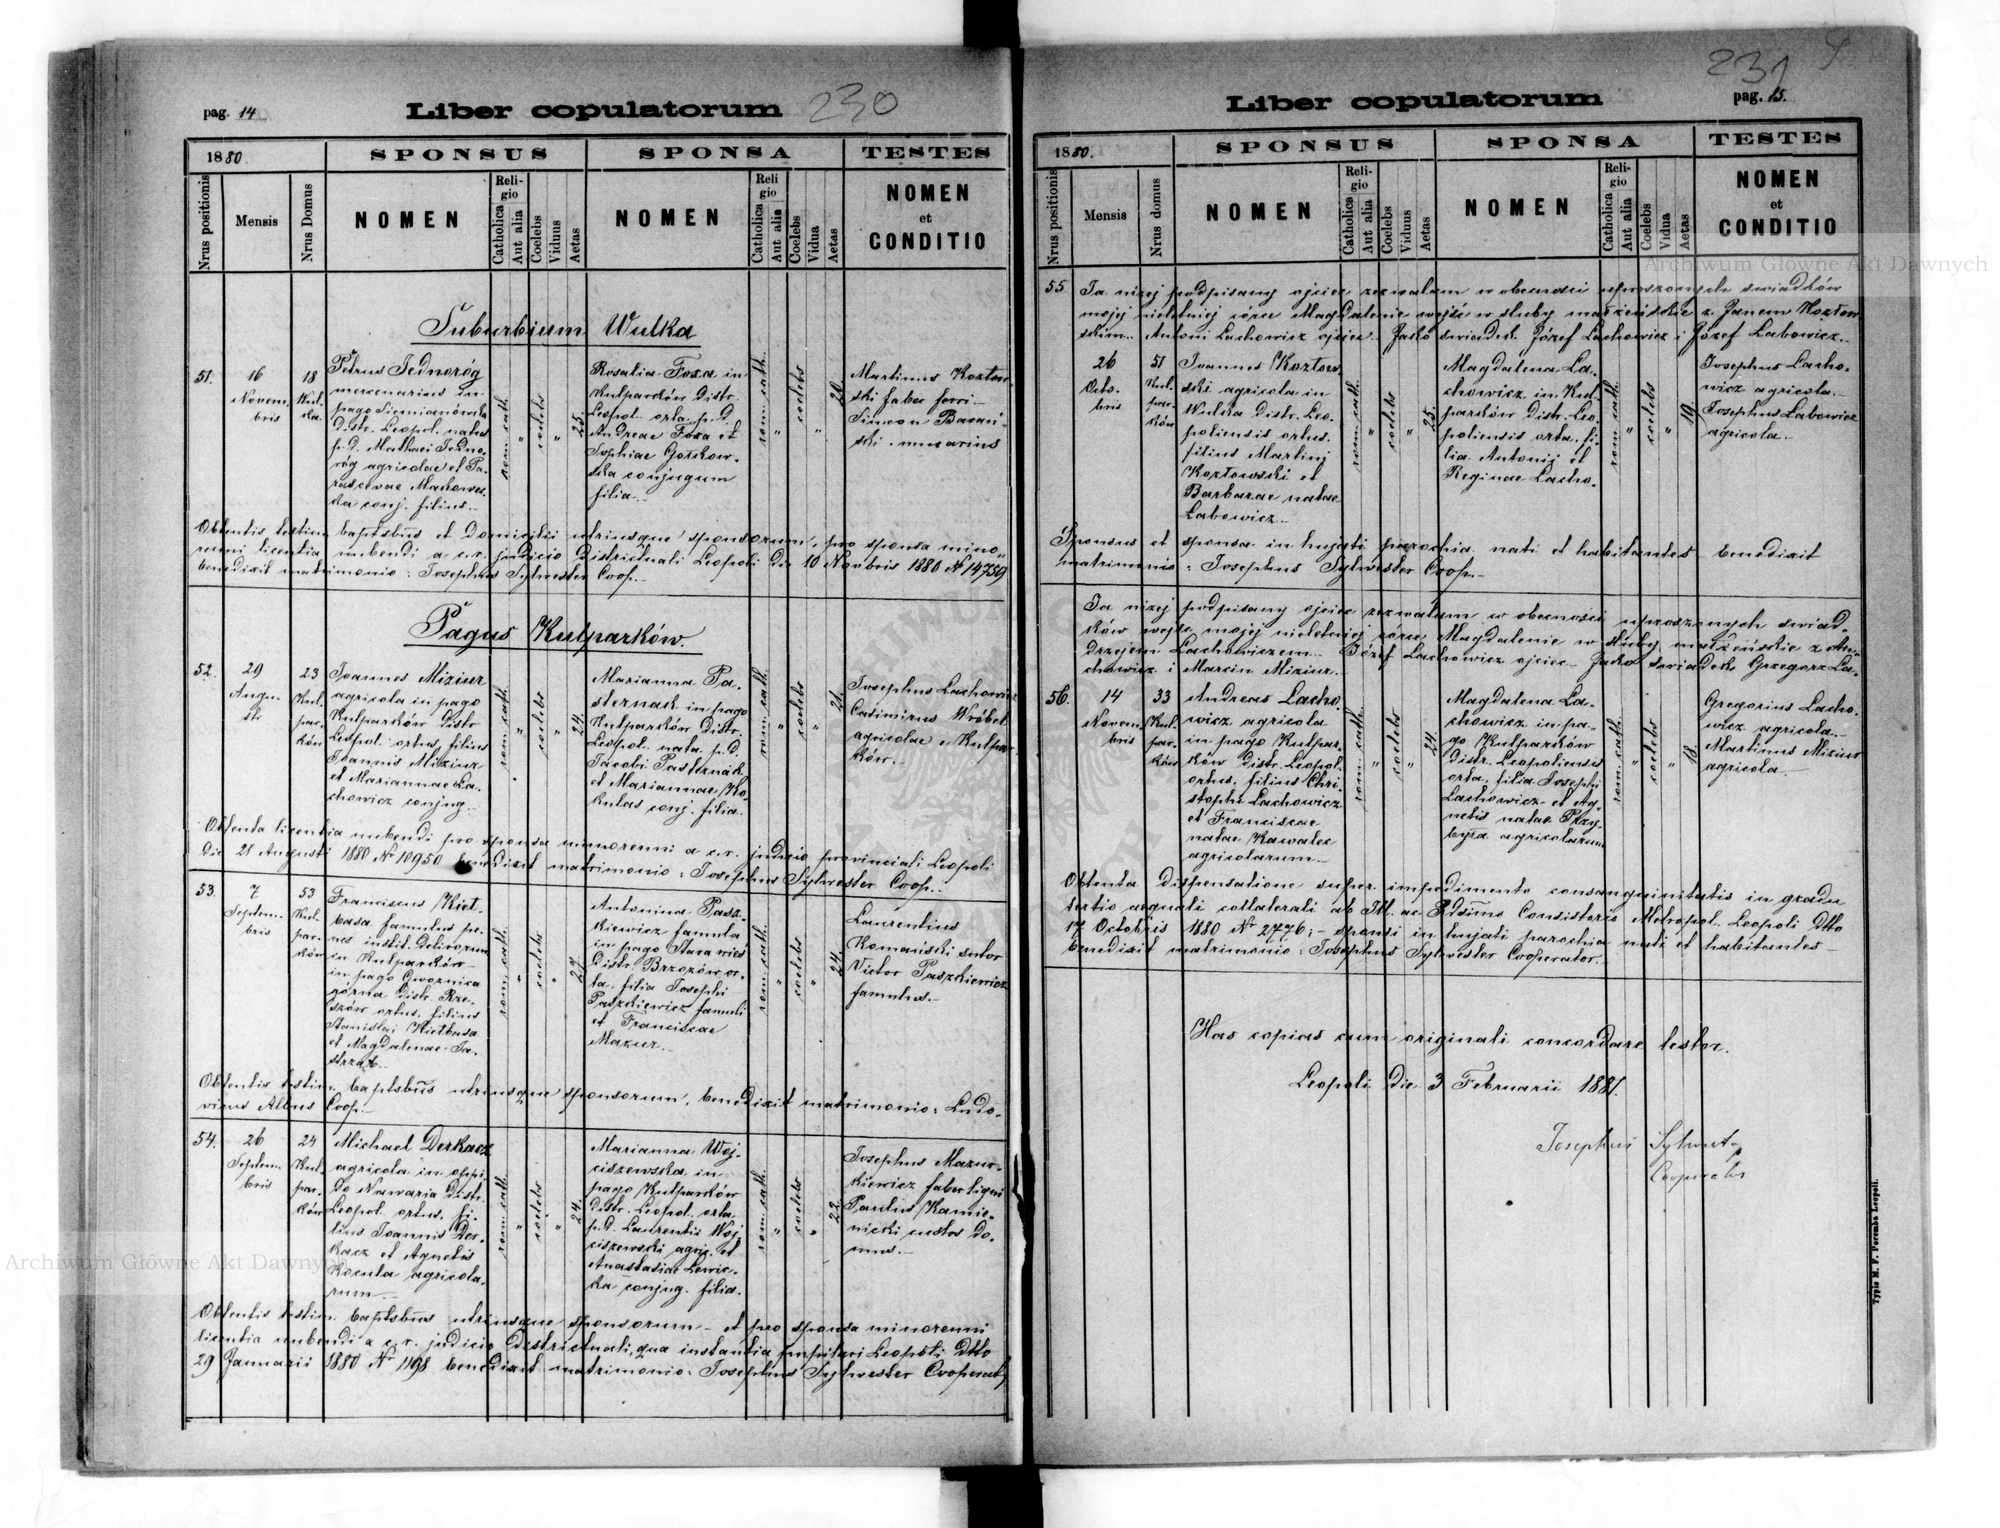 230
pag. 14
Liber copulatorum
1880.
SPONSUS
SPONSA
TESTES
Nrus positionis
Mensis
Nrus Domus
NOMEN
Religio
Catholica
Aut alia
Coelebs
Viduus
Aetas
NOMEN
Religio
Catholica
Aut alia
Coelebs
Vidua
Aetas
NOMEN
et
CONDITIO
Suburbium Wulka
51.
16
Novem
bris
18
Wul
ka
Petrus Jednoróg
mercenarius in
pago Siemianówka
Distr. Leopol. natus
p. D. Mathaei Jedno-
róg agricolae et Pa-
rascevae Makowec-
ka conj. filius.
rom. cath.
"
coelebs
"
25.
Rosalia Foxa in
Kulparków Distr.
Leopol. orta. p. D.
Andreae Foxa et
Sophiae Gorkow-
ska conjugum
filia.
rom. cath.
"
coelebs
"
20.
Martinus Kozłow-
ski faber ferri
Simeon Baran-
ski murarius
Obtentis testim. baptsbus et Domicilii utriusque sponsorum, pro sponsa mino-
renni licentia nubendi a c.r. judicio Districtuali Leopoli Die 10 Novbris 1880 № 14759
benedixit matrimonio: Josephus Sylwester Coop.
Pagus Kulparków.
52.
29
Augu-
sti
23
Kul-
par-
ków
Joannes Miziur
agricola in pago
Kulparków Distr
Leopol. ortus, filius
Joannis Miziur
et Mariannae La-
chowicz conjug.
rom. cath.
"
coelebs
"
24.
Marianna Pa-
sternak in pago
Kulparków Distr.
Leopol. nata. p. D.
Jacobi Pasternak
et Mariannae Ko-
kulas conj. filia.
rom. cath.
"
coelebs
"
21.
Josephus Lachowicz
Casimirus Wróbel
agricolae e Kulpar
ków.
Obtenta licentia nubendi pro sponsa minorenni a c.r. judicio provinciali Leopoli
Die 21 Augusti 1880 № 10950 benedixit matrimonio: Josephus Sylwester Coop.
53.
7
Septem-
bris
53
Kul-
par-
ków
Franciscus Kieł-
basa famulus pe-
nes instit. Delirorum
in Kulparków
in pago Gwoznica
górna Distr. Rze-
szów ortus. filius
Stanislai Kiełbasa
et Magdalenae Ja-
strząb.
rom. cath.
"
coelebs
"
27.
Antonina Pasz-
kiewicz famula
in pago Stara wieś
Distr. Brzozów or-
ta. filia Josephi
Paszkiewicz famuli
et Franciscae
Mazur.
rom. cath.
"
coelebs
"
24.
Laurentius
Komański sutor
Victor Paszkiewicz
famulus.
Obtentis testim. baptsbus utriusque sponsorum, benedixit matrimonio: Ludo-
vicus Albus Coop.
54.
26
Septem-
bris
24
Kul-
par-
ków
Michael Derkacz
agricola in oppi-
do Nawaria Distr.
Leopol. ortus. fi-
lius Joannis Der-
kacz et Agnetis
Kocula agricola-
rum.
rom. cath.
"
coelebs
"
24.
Marianna Woj-
ciszewska in
pago Kulparków
Distr. Leopol. orta.
p. D. Laurentii Woj-
ciszewski agric. et
Anastasiae Lewic-
ka conjug. filia.
rom. cath.
"
coelebs
"
22.
Josephus Mazur-
kiewicz faber ligni
Paulus Kamie-
niecki custos Do-
mus.
Obtentis testim. baptsbus utriusque sponsorum et pro sponsa minorenni
licentia nubendi a c.r. judicio Districtuali, qua instantia pupilari Leopoli Dtto
29 Januarii 1880 № 1198 benedixit matrimonio: Josephus Sylwester Cooperat.
231
pag. 15.
Liber copulatorum
1880.
SPONSUS
SPONSA
TESTES
Nrus positionis
Mensis
Nrus domus
NOMEN
Religio
Catholica
Aut alia
Coelebs
Viduus
Aetas
NOMEN
Religio
Catholica
Aut alia
Coelebs
Vidua
Aetas
NOMEN
et
CONDITIO
55.
Ja niżej podpisany ojciec zezwalam w obecności uproszonych świadków
mojej nieletniej córce Magdalenie wejść w śluby małżeńskie z Janem Kozłow-
skim. Antoni Lachowicz ojciec. Jako świadek Józef Lachowicz i Józef Labowicz.
26
Octo-
bris
51
Kul-
par-
ków
Joannes Kozłow-
ski agricola in
Wulka Distr. Leo-
poliensis ortus.
filius Martini
Kozłowski et
Barbarae natae
Labowicz.
rom. cath.
"
coelebs
"
25.
Magdalena La-
chowicz in Kul-
parków Distr. Leo-
poliensis orta. fi-
lia Antonii et
Reginae Lacho.
rom. cath.
"
coelebs
"
19.
Josephus Lacho-
wicz agricola.
Josephus Labowicz
agricola.
Sponsus et sponsa in hujati parochia nati et habitantes benedixit
matrimonio: Josephus Sylwester Coop.
Ja niżej podpisany ojciec zezwalam w obecności uproszonych świad-
ków wejść mojej nieletniej córce Magdalenie w śluby małżeńskie z An-
drzejem Lachowiczem. Józef Lachowicz ojciec. Jako świadek Grzegorz La-
chowicz i Marcin Miziur.
56.
14
Novem-
bris
33
Kul-
par-
ków
Andreas Lacho-
wicz agricola
in pago Kulpar-
ków Distr. Leopol.
ortus. filius Chri-
stophi Lachowicz
et Franciscae
natae Kawalec
agricolarum.
rom. cath.
"
coelebs
"
24.
Magdalena La-
chowicz in pa-
go Kulparków
Distr. Leopoliensis
orta. filia Josephi
Lachowicz et Ag-
netis natae Przy-
była agricolarum
rom. cath.
"
coelebs
"
18.
Gregorius Lacho-
wicz agricola.
Martinus Miziur
agricola.
Obtenta Dispensatione super impedimento consanguinitatis in gradu
tertio aequali collaterali ab Ill. ac Rdsimo Consistorio Metropol. Leopoli Dtto
17 Octobris 1880 № 2776; sponsi in hujati parochia nati et habitantes
benedixit matrimonio: Josephus Sylwester Cooperator.
Has copias cum originali concordare testor.
Leopoli Die 3 Februarii 1881.
Josephus Sylwester
Cooperator
Typis M. F. Poremba Leopoli.
Archiwum Główne Akt Dawnych
Archiwum Główne Akt Dawnych